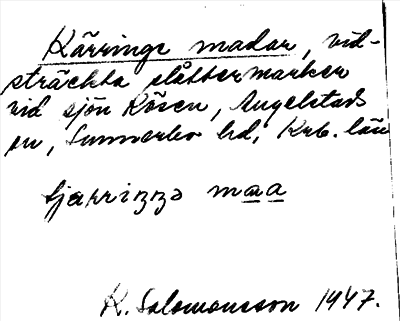 Kärringe madar, vid-
sträckta slåttermarker
vid sjön Rösen, Angelstads
sn, Sunnerbo hd, Krb. län
tjærriŋŋə maa
K. Salomonsson 1947.